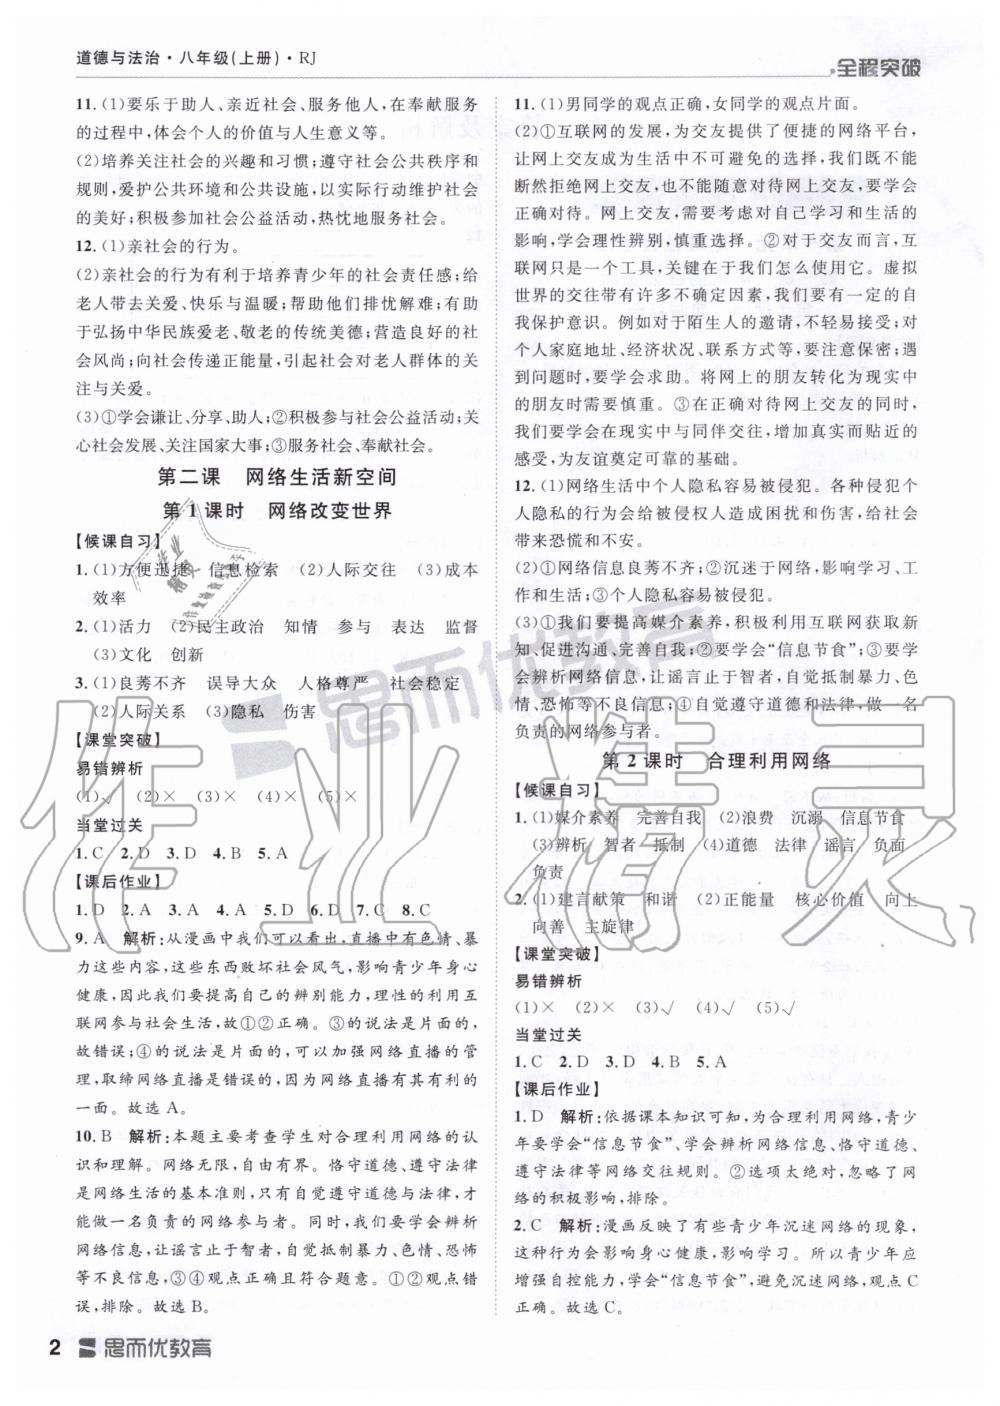 道德与法治·八年级(上册)·RJ
全程突破
11. (1)要乐于助人、亲近社会、服务他人,在奉献服务
的过程中,体会个人的价值与人生意义等。
(2)培养关注社会的兴趣和习惯;遵守社会公共秩序和
规则,爱护公共环境和公共设施,以实际行动维护社会
的美好;积极参加社会公益活动,热忱地服务社会。
12. (1)亲社会的行为。
(2)亲社会的行为有利于培养青少年的社会责任感;给
老人带去关爱、快乐与温暖;帮助他们排忧解难;有助
于弘扬中华民族爱老、敬老的传统美德;营造良好的社
会风尚;向社会传递正能量,引起社会对老人群体的关
注与关爱。
(3)①学会谦让、分享、助人;②积极参与社会公益活动;关
心社会发展、关注国家大事;③服务社会、奉献社会。
第二课　网络生活新空间
第1课时　网络改变世界
【候课自习】
1. (1)方便迅捷　信息检索　(2)人际交往　(3)成本
效率
2. (1)活力　(2)民主政治　知情　参与　表达　监督
(3)文化　创新
3. (1)良莠不齐　误导大众　人格尊严　社会稳定
(2)人际关系　(3)隐私　伤害
【课堂突破】
易错辨析
(1)√　(2)×　(3)×　(4)×　(5)×
当堂过关
1. C　2. D　3. D　4. B　5. A
【课后作业】
1. D　2. A　3. A　4. A　5. D　6. D　7. C　8. C
9. A　解析:从漫画中我们可以看出,直播中有色情、暴
力这些内容,这些东西败坏社会风气,影响青少年身心
健康,因此我们要提高自己的辨别能力,理性的利用互
联网参与社会生活,故①②正确。③的说法是片面的,
故错误;④的说法是片面的,可以加强网络直播的管
理,取缔网络直播是错误的,因为网络直播有其有利的
一面。故选 A。
10. B　解析:本题主要考查学生对合理利用网络的认
识和理解。网络无限,自由有界。恪守道德、遵守法律
是网络生活的基本准则,只有自觉遵守道德与法律,才
能做一名负责的网络参与者。同时,我们要学会辨析
网络信息,让谣言止于智者,自觉抵制暴力、色情、恐怖
等不良信息,③④观点正确且符合题意。①②观点错
误,排除。故选 B。
11. (1)男同学的观点正确,女同学的观点片面。
(2)①互联网的发展,为交友提供了便捷的网络平台,
让网上交友成为生活中不可避免的选择,我们既不能
断然拒绝网上交友,也不能随意对待网上交友,要学会
正确对待。网上交友,需要考虑对自己学习和生活的
影响,学会理性辨别,慎重选择。②对于交友而言,互
联网只是一个工具,关键在于我们怎么使用它。虚拟
世界的交往带有许多不确定因素,我们要有一定的自
我保护意识。例如对于陌生人的邀请,不轻易接受;对
个人家庭地址、经济状况、联系方式等,要注意保密;遇
到问题时,要学会求助。将网上的朋友转化为现实中
的朋友时需要慎重。③在正确对待网上交友的同时,
我们要学会在现实中与同伴交往,增加真实而贴近的
感受,为友谊奠定可靠的基础。
12. (1)网络生活中个人隐私容易被侵犯。各种侵犯个
人隐私的行为会给被侵权人造成困扰和伤害,给社会
带来恐慌和不安。
(2)①网络信息良莠不齐;②沉迷于网络,影响学习、工
作和生活;③个人隐私容易被侵犯。
(3)①我们要提高媒介素养,积极利用互联网获取新
知、促进沟通、完善自我;②要学会“信息节食”;③要学
会辨析网络信息,让谣言止于智者,自觉抵制暴力、色
情、恐怖等不良信息;④自觉遵守道德和法律,做一名
负责的网络参与者。
第2课时　合理利用网络
【候课自习】
1. (1)媒介素养　完善自我　(2)浪费　沉溺　信息节食
(3)辨析　智者　抵制　(4)道德　法律　谣言　负面
负责
2. (1)建言献策　和谐　(2)正能量　核心价值　向上
向善　主旋律
【课堂突破】
易错辨析
(1)×　(2)×　(3)√　(4)√　(5)√
当堂过关
1. C　2. D　3. D　4. B　5. A
【课后作业】
1. D　解析:依据课本知识可知,为合理利用网络,青少
年要学会“信息节食”、学会辨析网络信息、恪守道德、
遵守法律等网络交往规则。②选项太绝对,忽略了网
络的积极影响,排除。
2. C　解析:漫画反映了有些青少年沉迷网络的现象,
这种行为会影响身心健康,影响学习。所以青少年应
增强自控能力,学会“信息节食”,避免沉迷网络,观点 C
正确。故选 C。
2
思而优教育
思而优教育
作业精灵